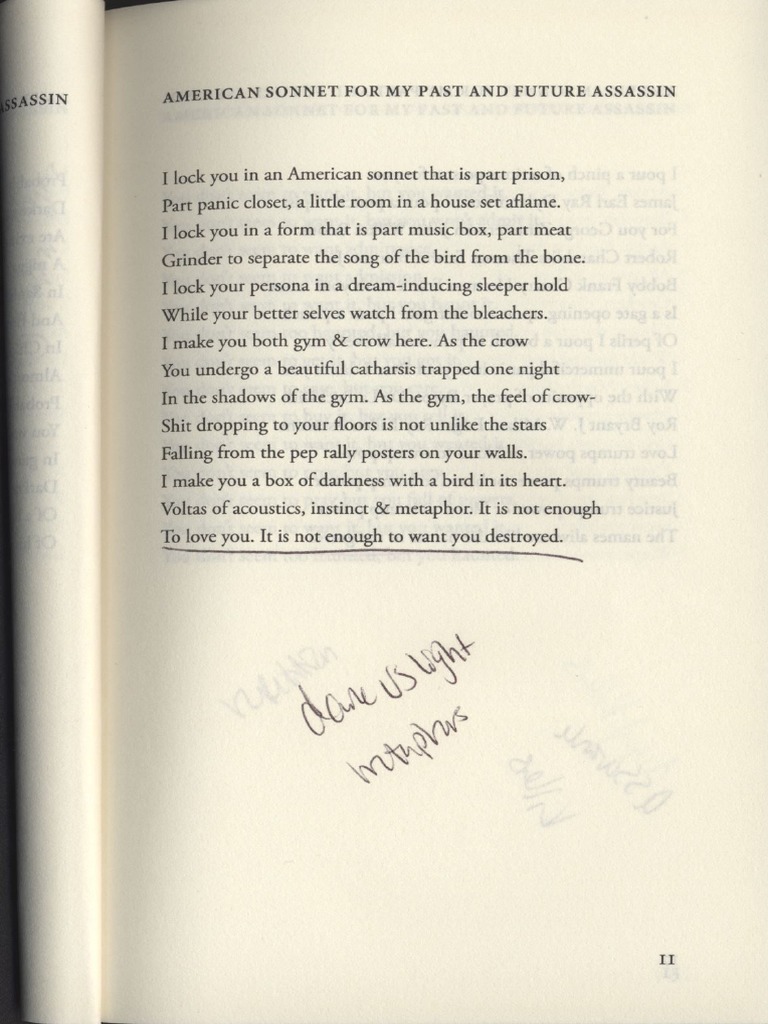 ASSASSIN
AMERICAN SONNET FOR MY PAST AND FUTURE ASSASSIN
I lock you in an American sonnet that is part prison,
Part panic closet, a little room in a house set aflame.
I lock you in a form that is part music box, part meat
Grinder to separate the song of the bird from the bone.
I lock your persona in a dream-inducing sleeper hold
While your better selves watch from the bleachers.
I make you both gym & crow here. As the crow
You undergo a beautiful catharsis trapped one night
In the shadows of the gym. As the gym, the feel of crow-
Shit dropping to your floors is not unlike the stars
Falling from the pep rally posters on your walls.
I make you a box of darkness with a bird in its heart.
Voltas of acoustics, instinct & metaphor. It is not enough
To love you. It is not enough to want you destroyed.
dark vs light
metaphors
11